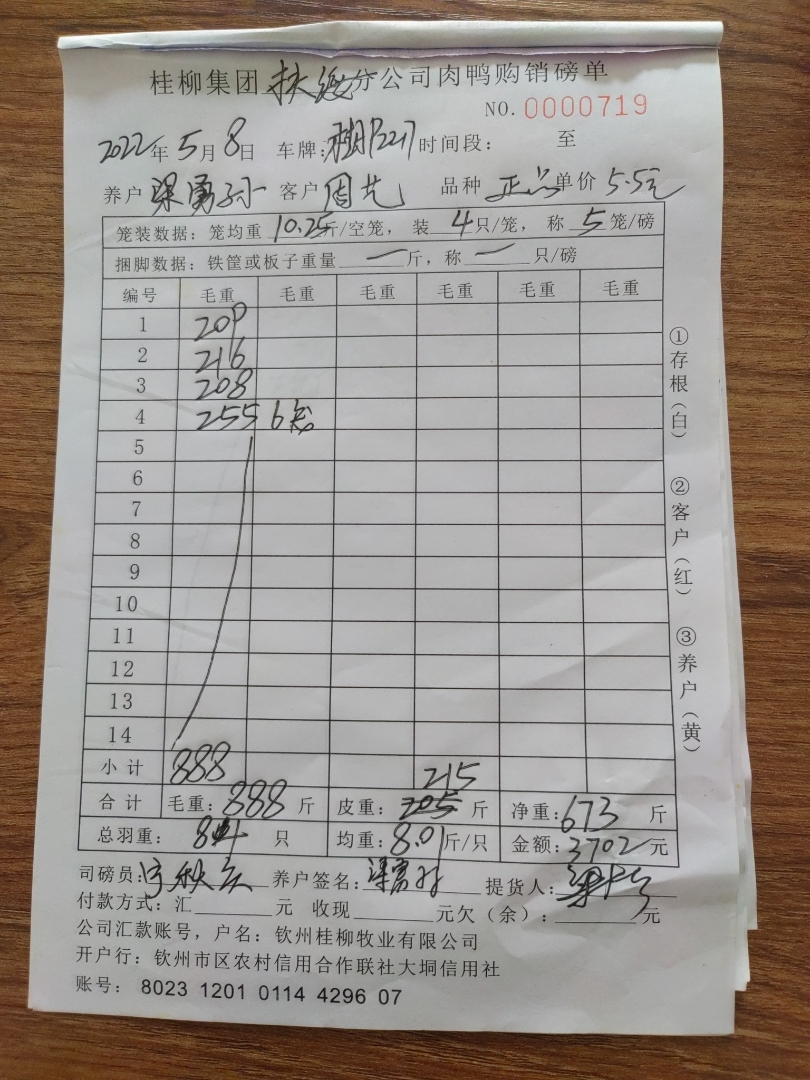 桂柳集团扶绥分公司肉鸭购销磅单
NO. 0000719
2022年5月8日 车牌: 时间段: 至
养户 梁勇 客户 周 品种 正品 单价 5.5元
笼装数据:笼均重 10.25 斤/空笼, 装 4 只/笼, 称 5 笼/磅
捆脚数据:铁筐或板子重量 一 斤,称 一 只/磅
编号 毛重 毛重 毛重 毛重 毛重 毛重
1 209
2 216
3 208
4 255 6笼
5
6
7
8
9
10
11
12
13
14
小计 888 215
合计 毛重:888 斤 皮重:205 斤 净重:673 斤
总羽重: 84 只 均重:8.01斤/只 金额:3702元
司磅员: 养户签名: 提货人:
付款方式:汇 元 收现 元欠(余): 元
公司汇款账号,户名:钦州桂柳牧业有限公司
开户行:钦州市区农村信用合作联社大垌信用社
账号: 8023 1201 0114 4296 07
①存根(白)
②客户(红)
③养户(黄)